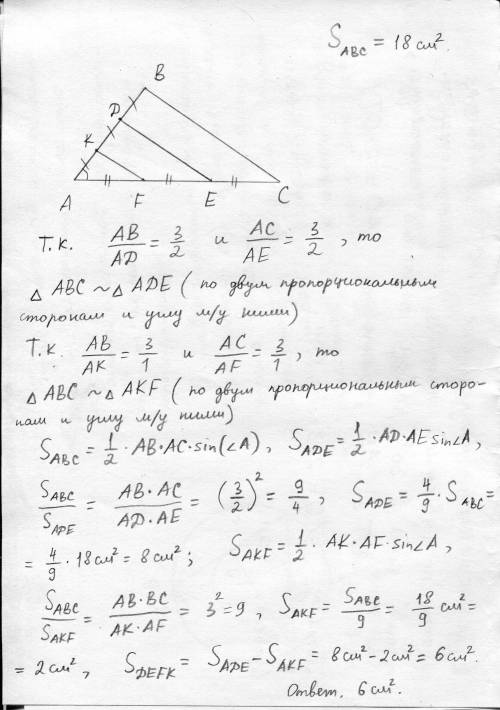 S_ABC = 18 см².
B
D
K
A F E C
Т.к. AB/AD = 3/2 и AC/AE = 3/2, то
△ ABC ~ △ ADE ( по двум пропорциональным
сторонам и углу м/у ними)
Т.к. AB/AK = 3/1 и AC/AF = 3/1, то
△ ABC ~ △ AKF ( по двум пропорциональным сторо-
нам и углу м/у ними)
S_ABC = 1/2 · AB · AC · sin(∠A), S_ADE = 1/2 · AD · AE sin∠A,
S_ABC/S_ADE = AB · AC/AD · AE = (3/2)² = 9/4, S_ADE = 4/9 · S_ABC =
= 4/9 · 18 см² = 8 см²; S_AKF = 1/2 · AK · AF · sin∠A,
S_ABC/S_AKF = AB · BC/AK · AF = 3² = 9, S_AKF = S_ABC/9 = 18/9 см² =
= 2 см², S_DEFK = S_ADE - S_AKF = 8 см² - 2 см² = 6 см².
Ответ. 6 см².